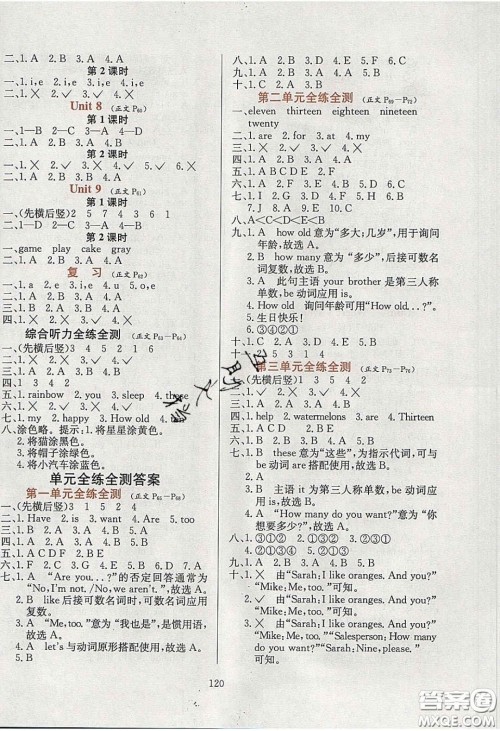 二、1. A 2. B 3. A 4. A
第 2 课时
一、1. i,e 2. i,e 3. i,e 4. i,e
二、1. ✗ 2. ✓ 3. ✓ 4. ✗
Unit 8 (正文 P60)
第 1 课时
一、1—B 2—C 3—A 4—D
二、1. A 2. B 3. A 4. B
第 2 课时
一、1. ✗ 2. ✓ 3. ✗ 4. ✗ 5. ✓ 6. ✗
二、1. A 2. B 3. B 4. A
Unit 9 (正文 P61)
第 1 课时
一、(先横后竖)2 5 7 4 3 6 1
二、1—D 2—C 3—A 4—B
第 2 课时
一、game play cake gray
二、1. B 2. A 3. A 4. B
复 习 (正文 P62)
一、1. a 2. o,e 3. i,e 4. u 5. o,e
二、1. B 2. A 3. A 4. B
三、1. B 2. A 3. B 4. B
四、1. ✗ 2. ✓ 3. ✓ 4. ✗
综合听力全练全测 (正文 P63—P64)
一、(先横后竖)3 4 5 2 1 6
二、1. A 2. B 3. B 4. B 5. B
三、1. B 2. B 3. A 4. A 5. B
四、1 3 4 5 2
五、1. rainbow 2. you 3. sleep 4. those
六、1. ✓ 2. ✓ 3. ✗ 4. ✗ 5. ✓
七、1. my 2. happy 3. How old 4.
八、涂色略。提示：1. 将星星涂黄色。
2. 将猫涂黑色。
3. 将帽子涂绿色。
4. 将小汽车涂蓝色。
单元全练全测答案
第一单元全练全测 (正文 P65—P68)
一、(先横后竖)3 1 5 2 4
二、1. ✓ 2. ✗ 3. ✗ 4. ✓
三、1. Have 2. is 3. want 4. Are 5. too
四、1. B 2. B 3. A 4. B
五、1. D 2. A 3. C 4. B 5. E
六、1. D 2. A 3. C 4. B 5. E
七、1. A “Are you...?”的否定回答通常为
“No, I'm not. /No, we aren't.”，故选 A。
2. B like 后接可数名词时，可数名词应
用复数。
3. A “Me, too.”意为“我也是”，是惯用语，
故选 A。
4. A let's 与动词原形搭配使用，故选 A。
5. B
八、1. G 2. A 3. D 4. E 5. F 6. C
九、1. A 2. B 3. B 4. B 5. A
十、1. C 2. E 3. D 4. A 5. B
第二单元全练全测 (正文 P69—P72)
一、eleven thirteen eighteen nineteen
twenty
二、1. are 2. for 3. at 4. my
三、1. ✗ 2. ✗ 3. ✓ 4. ✓
四、1. A 2. B 3. A 4. A
五、1. ABCDE 2. ACDBE
六、1. C 2. E 3. D 4. A 5. B
七、1. D 2. H 3. G 4. I 5. B 6. C
7. J 8. A 9. E 10. F
八、A<C<D<B<G<E<F
九、1. A how old 意为“多大；几岁”，用于询问
年龄，故选 A。
2. B how many 意为“多少”，后接可数名
词复数，故选 B。
3. A 此句主语 your brother 是第三人称
单数，be 动词应用 is。
4. How old 询问年龄可用“How old...?”
5. 生日快乐！
6. ③④②①
十、1. ③①②④ 2. ④②①③
十一、2 5 3 1 4
第三单元全练全测 (正文 P73—P76)
一、(先横后竖)1 3 5 4 2
二、1. A 2. B 3. B 4. A
三、1. B 2. A 3. B 4. A
四、1. help 2. watermelons 3. are 4. Thirteen
五、1. ACD 2. BE
六、1. ✗ 2. ✓ 3. ✗ 4. ✓
七、1. E 2. A 3. B 4. C 5. D
八、1. B these 意为“这些”，为指示代词，可与
be 动词 are 搭配使用，故选 B。
2. A
3. B 主语 it 为第三人称单数，be 动词应
用 is，故选 B。
4. A “How many do you want?”意为“你
想要多少？”，故选 A。
5. ④②①③
九、1. ③①② 2. ①③② 3. ①③②
十、1. ✗ 由“Sarah: I like oranges. And you?”
“Mike: Me, too.”可知。
2. ✓
3. ✗ 由“Sarah: I like oranges. And you?”
“Mike: Me, too.” “Salesperson: How many
do you want?” “Sarah: Nine, please.”
可知。
120